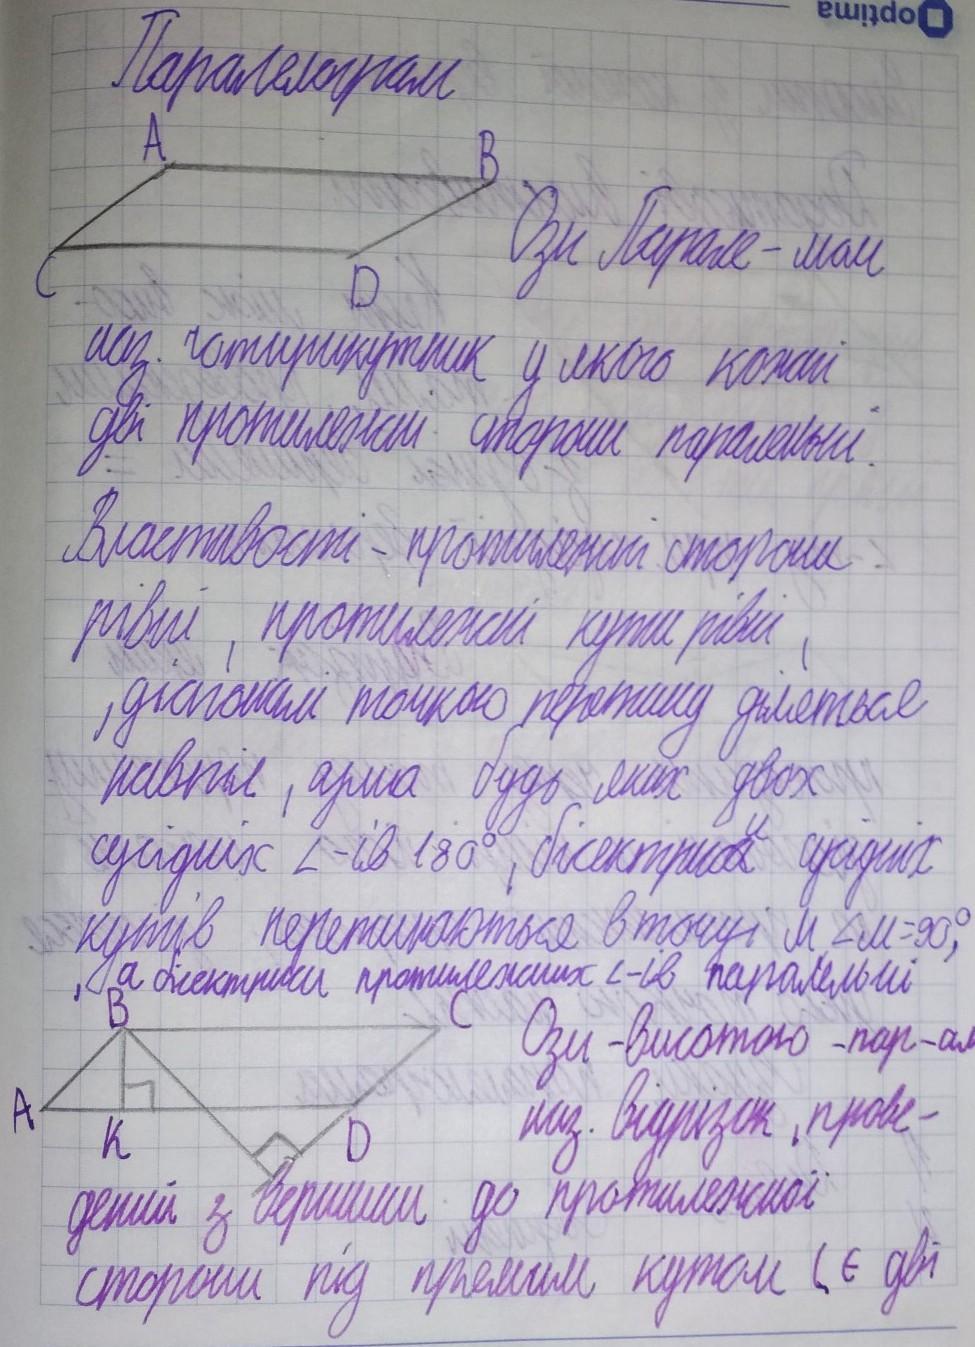 optima
Паралелограм
A
B
C
D
Озн Парале-мом
наз. чотирикутник у якого кожні
дві протилежні сторони паралельні.
Властивості - протилежні сторони
рівні, протилежні кути рівні,
, діагоналі точкою перетину діляться
навпіл, сума будь яких двох
сусідніх ∠-ів 180°, бісектриси сусідніх
кутів перетинаються в точці М ∠М=90°,
, а бісектриси протилежних ∠-ів паралельні
B
C
A
K
D
Озн - висотою - пар-ам
наз. відрізок, прове-
дений з вершини до протилежної
сторони під прямим кутом (є дві